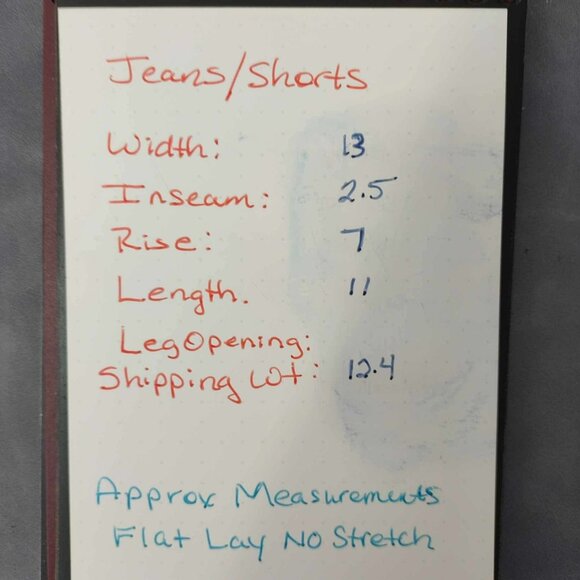 Jeans/Shorts
Width: 13
Inseam: 2.5
Rise: 7
Length. 11
Leg Opening:
Shipping Wt: 12.4
Approx Measurements
Flat Lay No Stretch